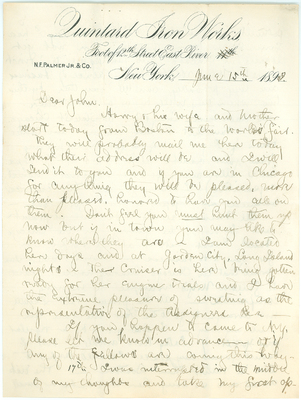 Quintard Iron Works
Foot of 12th Street East River
N.F. Palmer Jr. & Co.
New York June 15th 1893.
Dear John,
Harry & his wife and Mother
start today from Boston to the World's Fair.
They will probably mail me here today
what their address will be and I will
send it to you and if you are in Chicago
for any thing they will be pleased, more
than pleased, honored to have you call on
them. Don't feel you must hunt them up
now but if in town you may like to
know where they are. I am located
here days and at Garden City, Long Island
nights. The Cruiser is here being gotten
ready for her engine trials, and I have
the extreme pleasure of sweating as the
representative of the designers here —
If you happen to come to N.Y.
please let me know in advance or if
any of the fellows are coming this way —
17th I was interrupted in the middle
of my thoughts and take my first op-